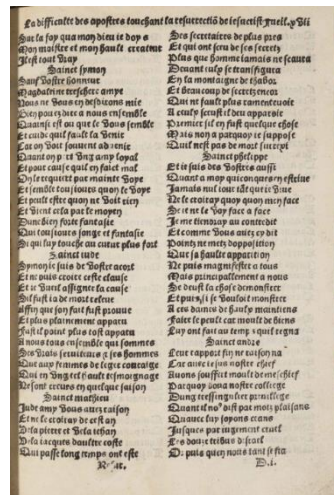 La difficulte des apostres touchant la resurrectiõ de iesucrist. fueil. xlvii
Sur la foy qua mon dieu ie doy s
Mon maistre et mon hault createur
Il est tout vray
Sainct symon
Sauf vostre honneur
Magdaleine treschere amye
Nous ne vous en desdirons mie
Bien pouez dire a nous ensemble
Quainsi est que le vous semble
Et cuide quil faulx la
Car on voit souuent aduenir
Quant on pert vng amy loyal
Et pour cause quil en faict mal
On le requiert par mainte voye
Et semble tousiours quon le voye
Et peult estre quon ne voit rien
Et vient cela par le moyen
Dune bien forte fantasie
Qui tousiours songe et fantasie
Se qui luy touche au cueur plus fort
Sainct iude
Symon ie suis de vostre acort
Et ne puis croire ceste clause
Et ie vueil assigner la cause
Sil fust ia de mort releue
Affin que son fait fust prouue
Et plus plainement apparu
Fust il point plus tost apparu
A nous tous ensemble qui sommes
Ses vrais seruiteurs et ses hommes
Que aux femmes de legier couraige
Qui en vng tel hault tesmoignage
Ne sont creues en quelque saison
Sainct mathieu
Iude amy vous auez raison
Et ne le croiray de cest an
De la pierre et de la iehan
De la iacques daultre coste
Qui passe long temps ont este
Ses secretaires de plus pres
Et qui ont sceu de ses secretz
Plus que homme iamais ne scaura
Deuant iceulx se transfigura
En la montaigne de thabor
Et beaucoup de secretz encor
Qui ne fault plus ramenteuoir
A iceulx se fust il deu apparoir
Premier sil en fust quelque chose
Mais non a par quoy ie suppose
Quil nest pas de mort surrexi
Sainct phelippe
Et ie suis des vostres aussi
Quant a moy quiconques en estriue
Iamais nul iour tãt que ie viue
Ne le croiray quoy quon men face
Se ie ne le voy face a face
Ie me tiendray au contredit
Et comme vous auez cy dit
Point ne metz dopposition
Que sa haulte apparition
Ne puis magnifester a tous
Mais principallement a nous
Se deust la chose demonstrer
Et puis sil se vouloit monstrer
A ces dames de haulx maintiens
Faire le peult car moult de biens
Luy ont fait au temps quil regna
Sainct andre
Leur rapport sin ne raison na
Car auec iesus nostre chief
Auons souffert moult de meschief
Par quoy dona nostre college
Dung tressingulier priuillege
Quant il no⁹ dist par motz plaisans
Quauec luy soyons ceans
Iusques par iugement cruel
Les douze tribus disrael
Or puis quen nous tant se fia
D.i.